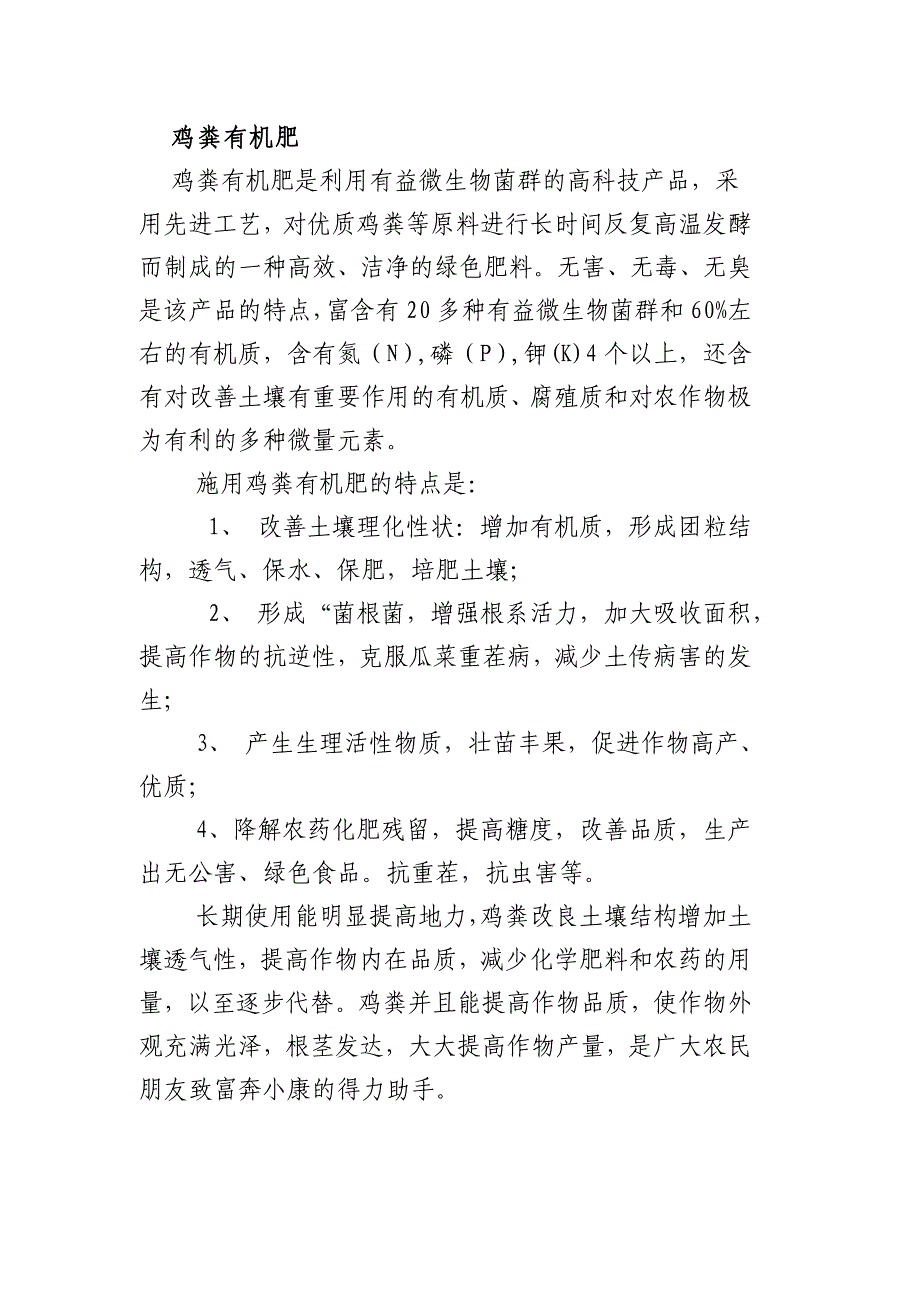 鸡粪有机肥
鸡粪有机肥是利用有益微生物菌群的高科技产品，采
用先进工艺，对优质鸡粪等原料进行长时间反复高温发酵
而制成的一种高效、洁净的绿色肥料。无害、无毒、无臭
是该产品的特点，富含有 20 多种有益微生物菌群和 60%左
右的有机质，含有氮（N),磷（P),钾(K)4 个以上，还含
有对改善土壤有重要作用的有机质、腐殖质和对农作物极
为有利的多种微量元素。
施用鸡粪有机肥的特点是：
1、 改善土壤理化性状：增加有机质，形成团粒结
构，透气、保水、保肥，培肥土壤；
2、 形成“菌根菌，增强根系活力，加大吸收面积，
提高作物的抗逆性，克服瓜菜重茬病，减少土传病害的发
生；
3、 产生生理活性物质，壮苗丰果，促进作物高产、
优质；
4、降解农药化肥残留，提高糖度，改善品质，生产
出无公害、绿色食品。抗重茬，抗虫害等。
长期使用能明显提高地力，鸡粪改良土壤结构增加土
壤透气性，提高作物内在品质，减少化学肥料和农药的用
量，以至逐步代替。鸡粪并且能提高作物品质，使作物外
观充满光泽，根茎发达，大大提高作物产量，是广大农民
朋友致富奔小康的得力助手。